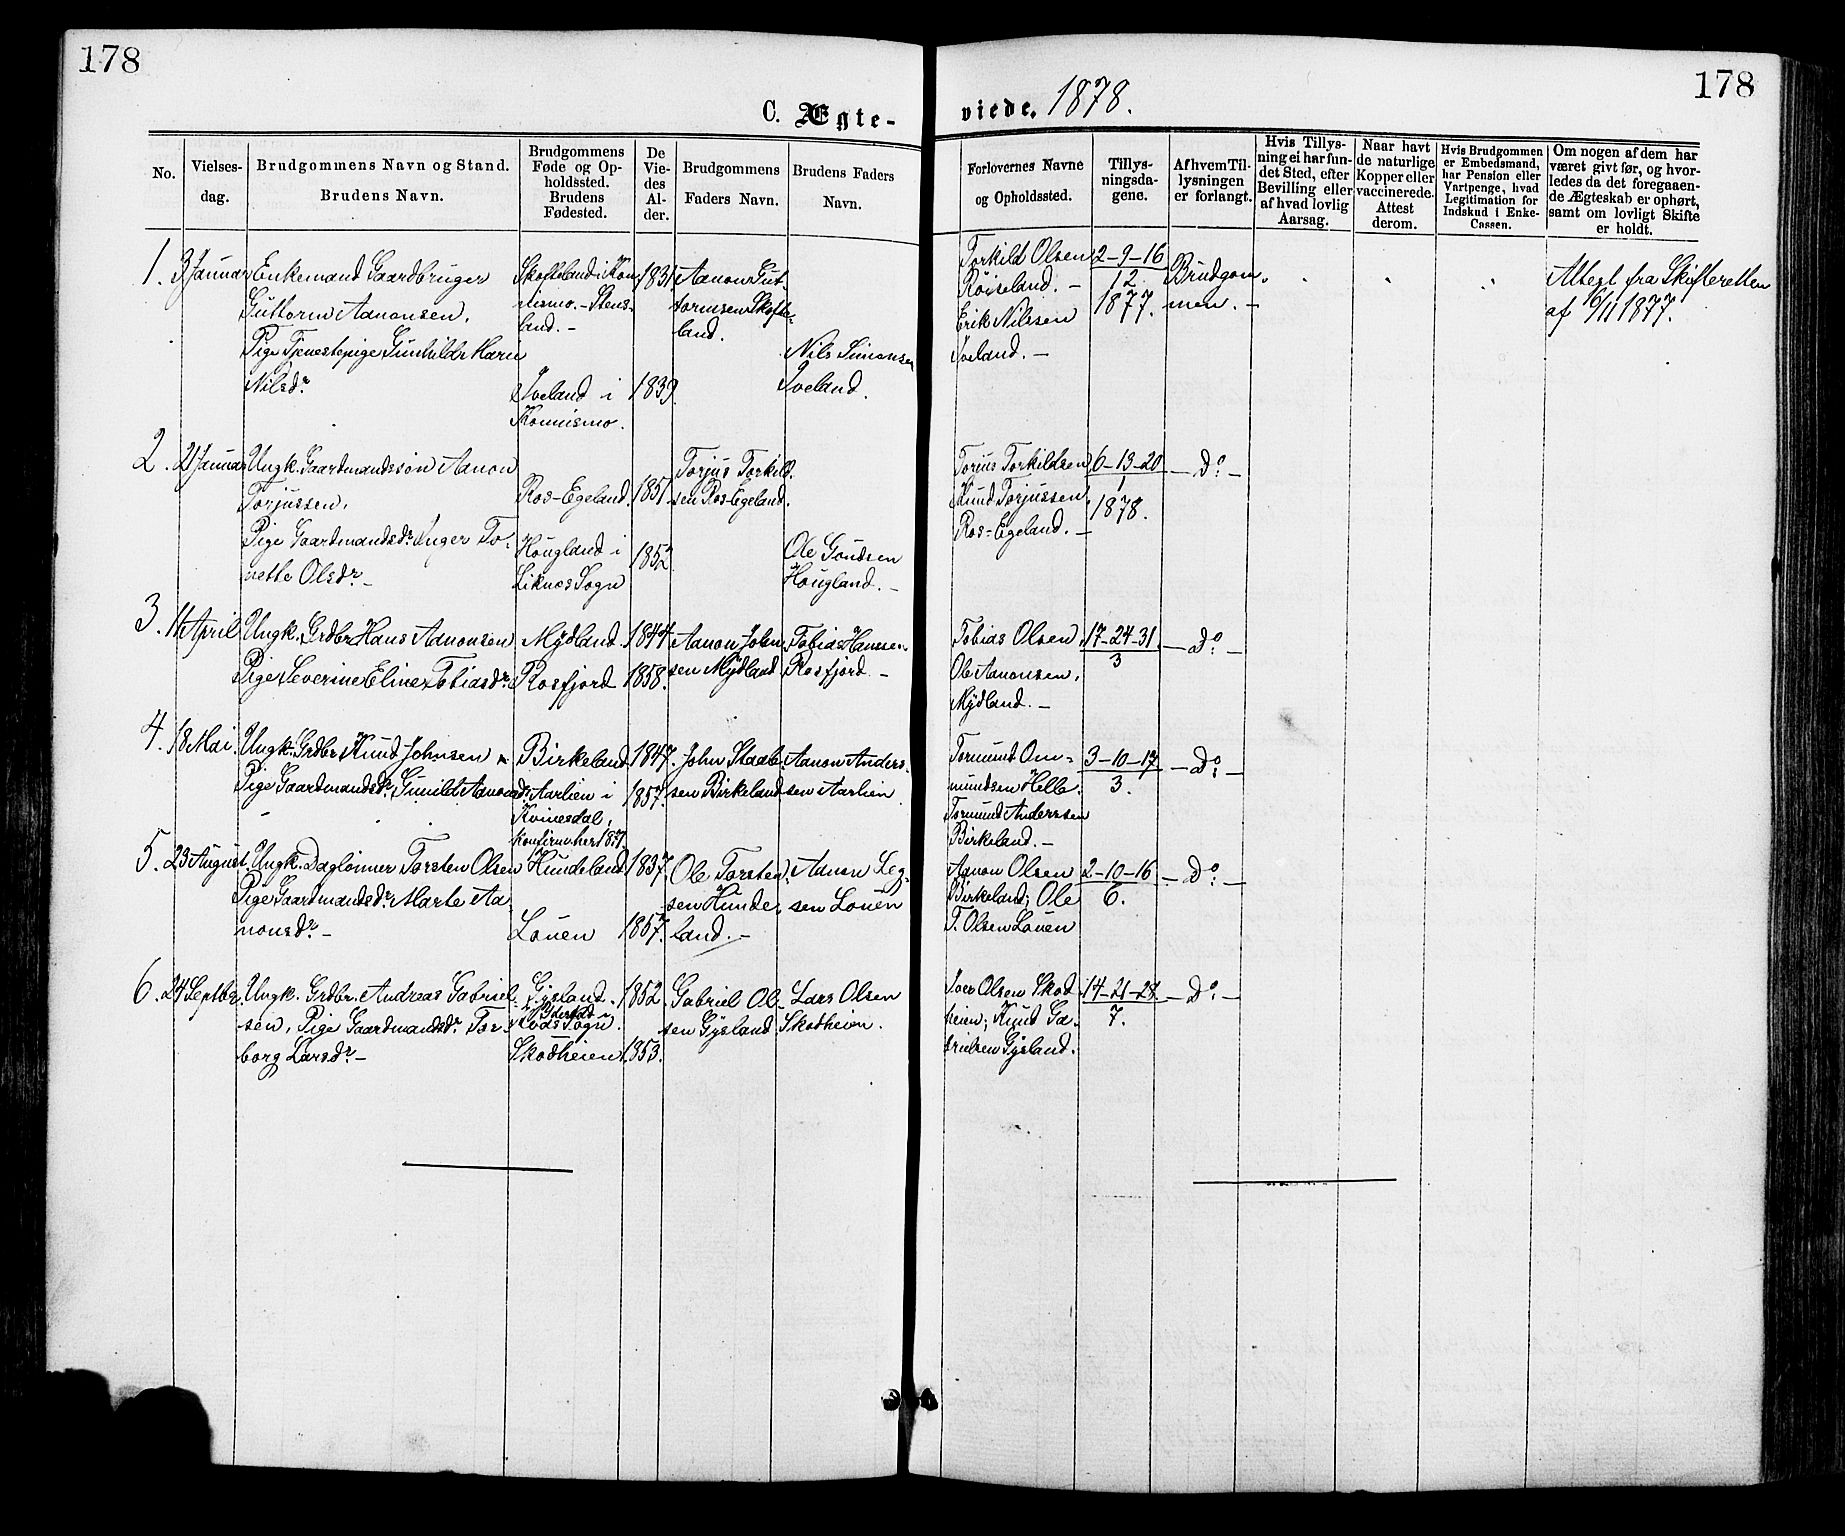 178
178
C. Ægte-
viede. 1878.
No.
Vielses-
dag.
Brudgommens Navn og Stand.
Brudens Navn.
Brudgommens
Føde og Op-
holdssted.
Brudens
Fødested.
De
Vie-
des
Al-
der.
Brudgommens
Faders Navn.
Brudens Faders
Navn.
Forlovernes Navne
og Opholdssted.
Tillys-
ningsda-
gene.
Af hvem Til-
lysningen
er forlangt.
Hvis Tillys-
ning ei har fun-
det Sted, efter
Bevilling eller
af hvad lovlig
Aarsag.
Naar havt
de naturlige
Kopper eller
vaccinerede.
Attest
derom.
Hvis Brudgommen
er Embedsmand,
har Pension eller
Vartpenge, hvad
Legitimation for
Indskud i Enke-
Cassen.
Om nogen af dem har
været givt før, og hvor-
ledes da det foregaaen-
de Ægteskab er ophørt,
samt om lovligt Skifte
er holdt.
1.
3 Januar
Enkemand Gaardbruger
Guttorm Aanonsen.
Pige Tjenestepige Gunhild Karn
Nilsdr.
Skofteland i Kon-
ismo. - Stens-
land. -
Iveland i
Konnismo.
1831
1839
Aanon Gut-
tormsen Skofte-
land.
Nils Simonsen
Iveland.
Torkild Olsen
Røiseland. -
Erik Nilssen
Iveland. -
2-9-16
12
1877.
Brudgom-
men. -
Attest fra Skifteretten
af 16/11 1877.
2.
21 Januar
Ungk. Gaardmandssøn Aanon
Torjussen.
Pige Gaardmandsdr. Inger To-
nette Olsdr. -
Ros-Egeland.
Hougland i
Liknes Sogn
1851.
1852
Torjus Torkild-
sen Ros-Egeland.
Ole Gundsen
Hougland. -
Torius Torkildsen
Knud Torjussen
Ros-Egeland. -
6-13-20
1
1878.
- Do. -
3.
11 April
Ungk. Grdbr. Hans Aanonsen
Pige Severine Eline Tobiasdr.
Mydland.
Rosfjord
1844.
1858.
Aanon John-
sen Mydland
Tobias Hansen
Rosfjord. -
Tobias Olsen
Ole Aanonsen,
Mydland. -
17-24-31.
3
- Do -
4.
18 Mai.
Ungk. Grdbr. Knud Johnsen
Pige Gaardmandsdr. Gunild Aanonsdr.
Birkeland
Aarlien i
Kvinesdal,
konfirm. her 1871.
1847.
1857.
John Staale-
sen Birkeland
Aanon Anders-
sen Aarlien
Tormund Om-
mundsen Helle.
Tormund Anderssen
Birkeland. -
3-10-17
3.
- Do. -
5.
23 August.
Ungk. Daglønner Torsten Olsen
Pige Gaardmandsdr. Marte Aa-
nonsdr. -
Hundeland
Louen
1837.
1857.
Ole Torsten-
sen Hunde-
land. -
Aanon Leg-
sen Louen
Aanon Olsen
Birkeland; Ole
T. Olsen Louen
2-10-16
6.
- Do. -
6.
24 Septbr.
Ungk. Grdbr. Andreas Gabriel-
sen. Pige Gaardmandsdr. Tor-
borg Larsdr. -
Gysland.
Sogn.
Skodheien
1852.
1853.
Gabriel Ol-
sen Gysland
Lars Olsen
Skodheien.
Iver Olsen Skod-
heien; Knud Ga-
brielsen Gysland.
14-21-28
7.
- Do. -